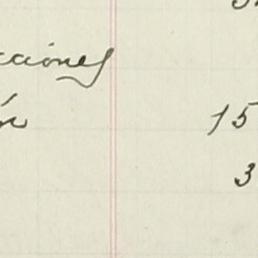 cciones
ón 15
3